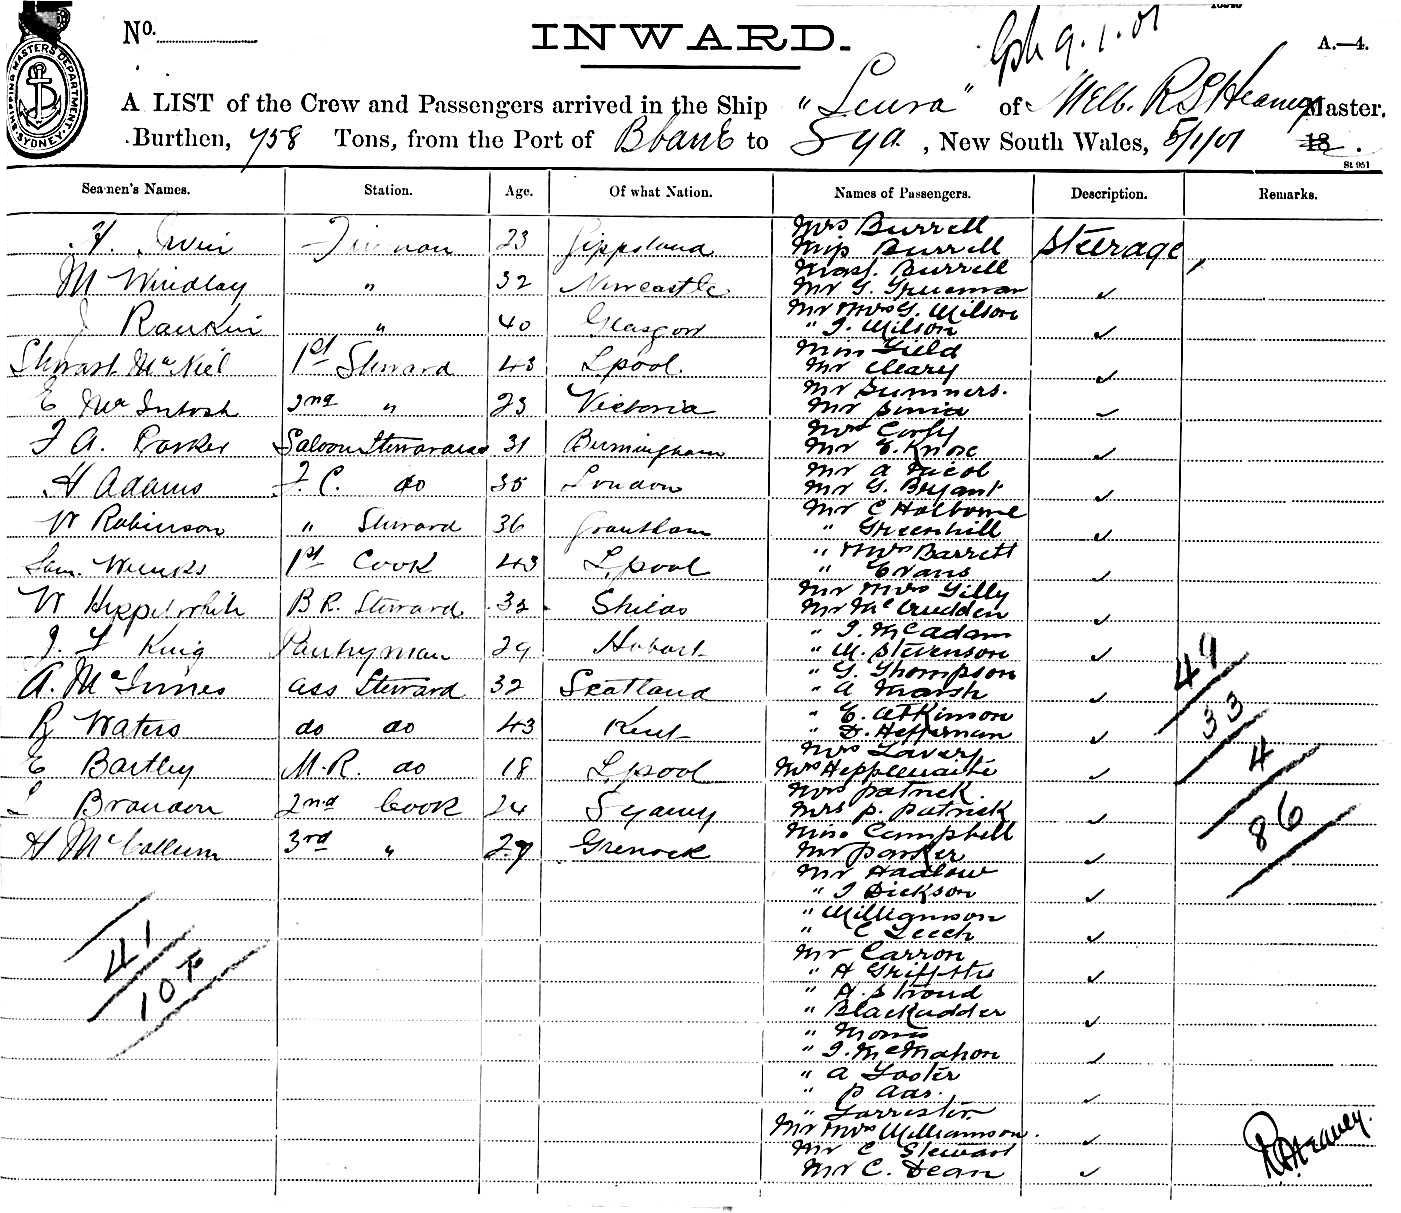 SHIPPING MASTERS DEPARTMENT SYDNEY
No.
INWARD.
9.1.01
A.—4.
A LIST of the Crew and Passengers arrived in the Ship "Leura" of Melb. R S Heaney Master.
Burthen, 758 Tons, from the Port of Bbane to Syd. , New South Wales, 5/1/01 18 .
St 951
Seamen's Names. Station. Age. Of what Nation. Names of Passengers. Description. Remarks.
Mrs Burrell
Irwin Fireman 23 Gippsland Miss Burrell Steerage
Mast. Burrell
M Windlay " 32 Newcastle Mr G.
Mr Mrs G. Wilson
J Rankin " 40 Glasgow " J. Wilson
Miss Field
Stewart McNeil 1st Steward 43 Lpool. Mr Cleary
Mr Summers.
E McIntosh 2nd " 23 Victoria Mr
Mrs Corfy
F A. Parker Saloon Stewardess 31 Birmingham Mr E. Knox
Mr A Nicol
H Adams F.C. do 35 London Mr G. Bryant
Mr C Holborne
W Robinson " Steward 36 Grantham " Greenhill
" Mrs Barrett
Sam. Weeks 1st Cook 43 Lpool " Evans
Mr Mrs Gilly
W Hepplewhite B R. Steward 32 Shilds Mr McCrudden
" J. McAdam
J F King Pantryman 29 Hobart " W. Stevenson
" G. Thompson
A. McInnes ass Steward 32 Scotland " A Marsh
" E. Atkinson
R Waters do do 43 Kent " D. Heffernan
Mrs Lavery
E Bartley M.R. do 18 Lpool Mrs Hepplewaite
Mrs Patrick.
L Brandon 2nd Cook 24 Sydney Mrs P. Patrick
Miss Campbell
H McCallum 3rd " 27 Grenock Mr Parker
Mr Hadlow
" J Dickson
" Williamson
" C Leech
Mr Carron
" H Griffiths
" H. Stroud
" Blackadder
" Morris
" J. McMahon
" A Foster
" P Aas.
" Forrester
Mr Mrs Williamson.
Mr C Stewart
Mr C. Dean
49
33
4
86
41
102
R S Heaney.